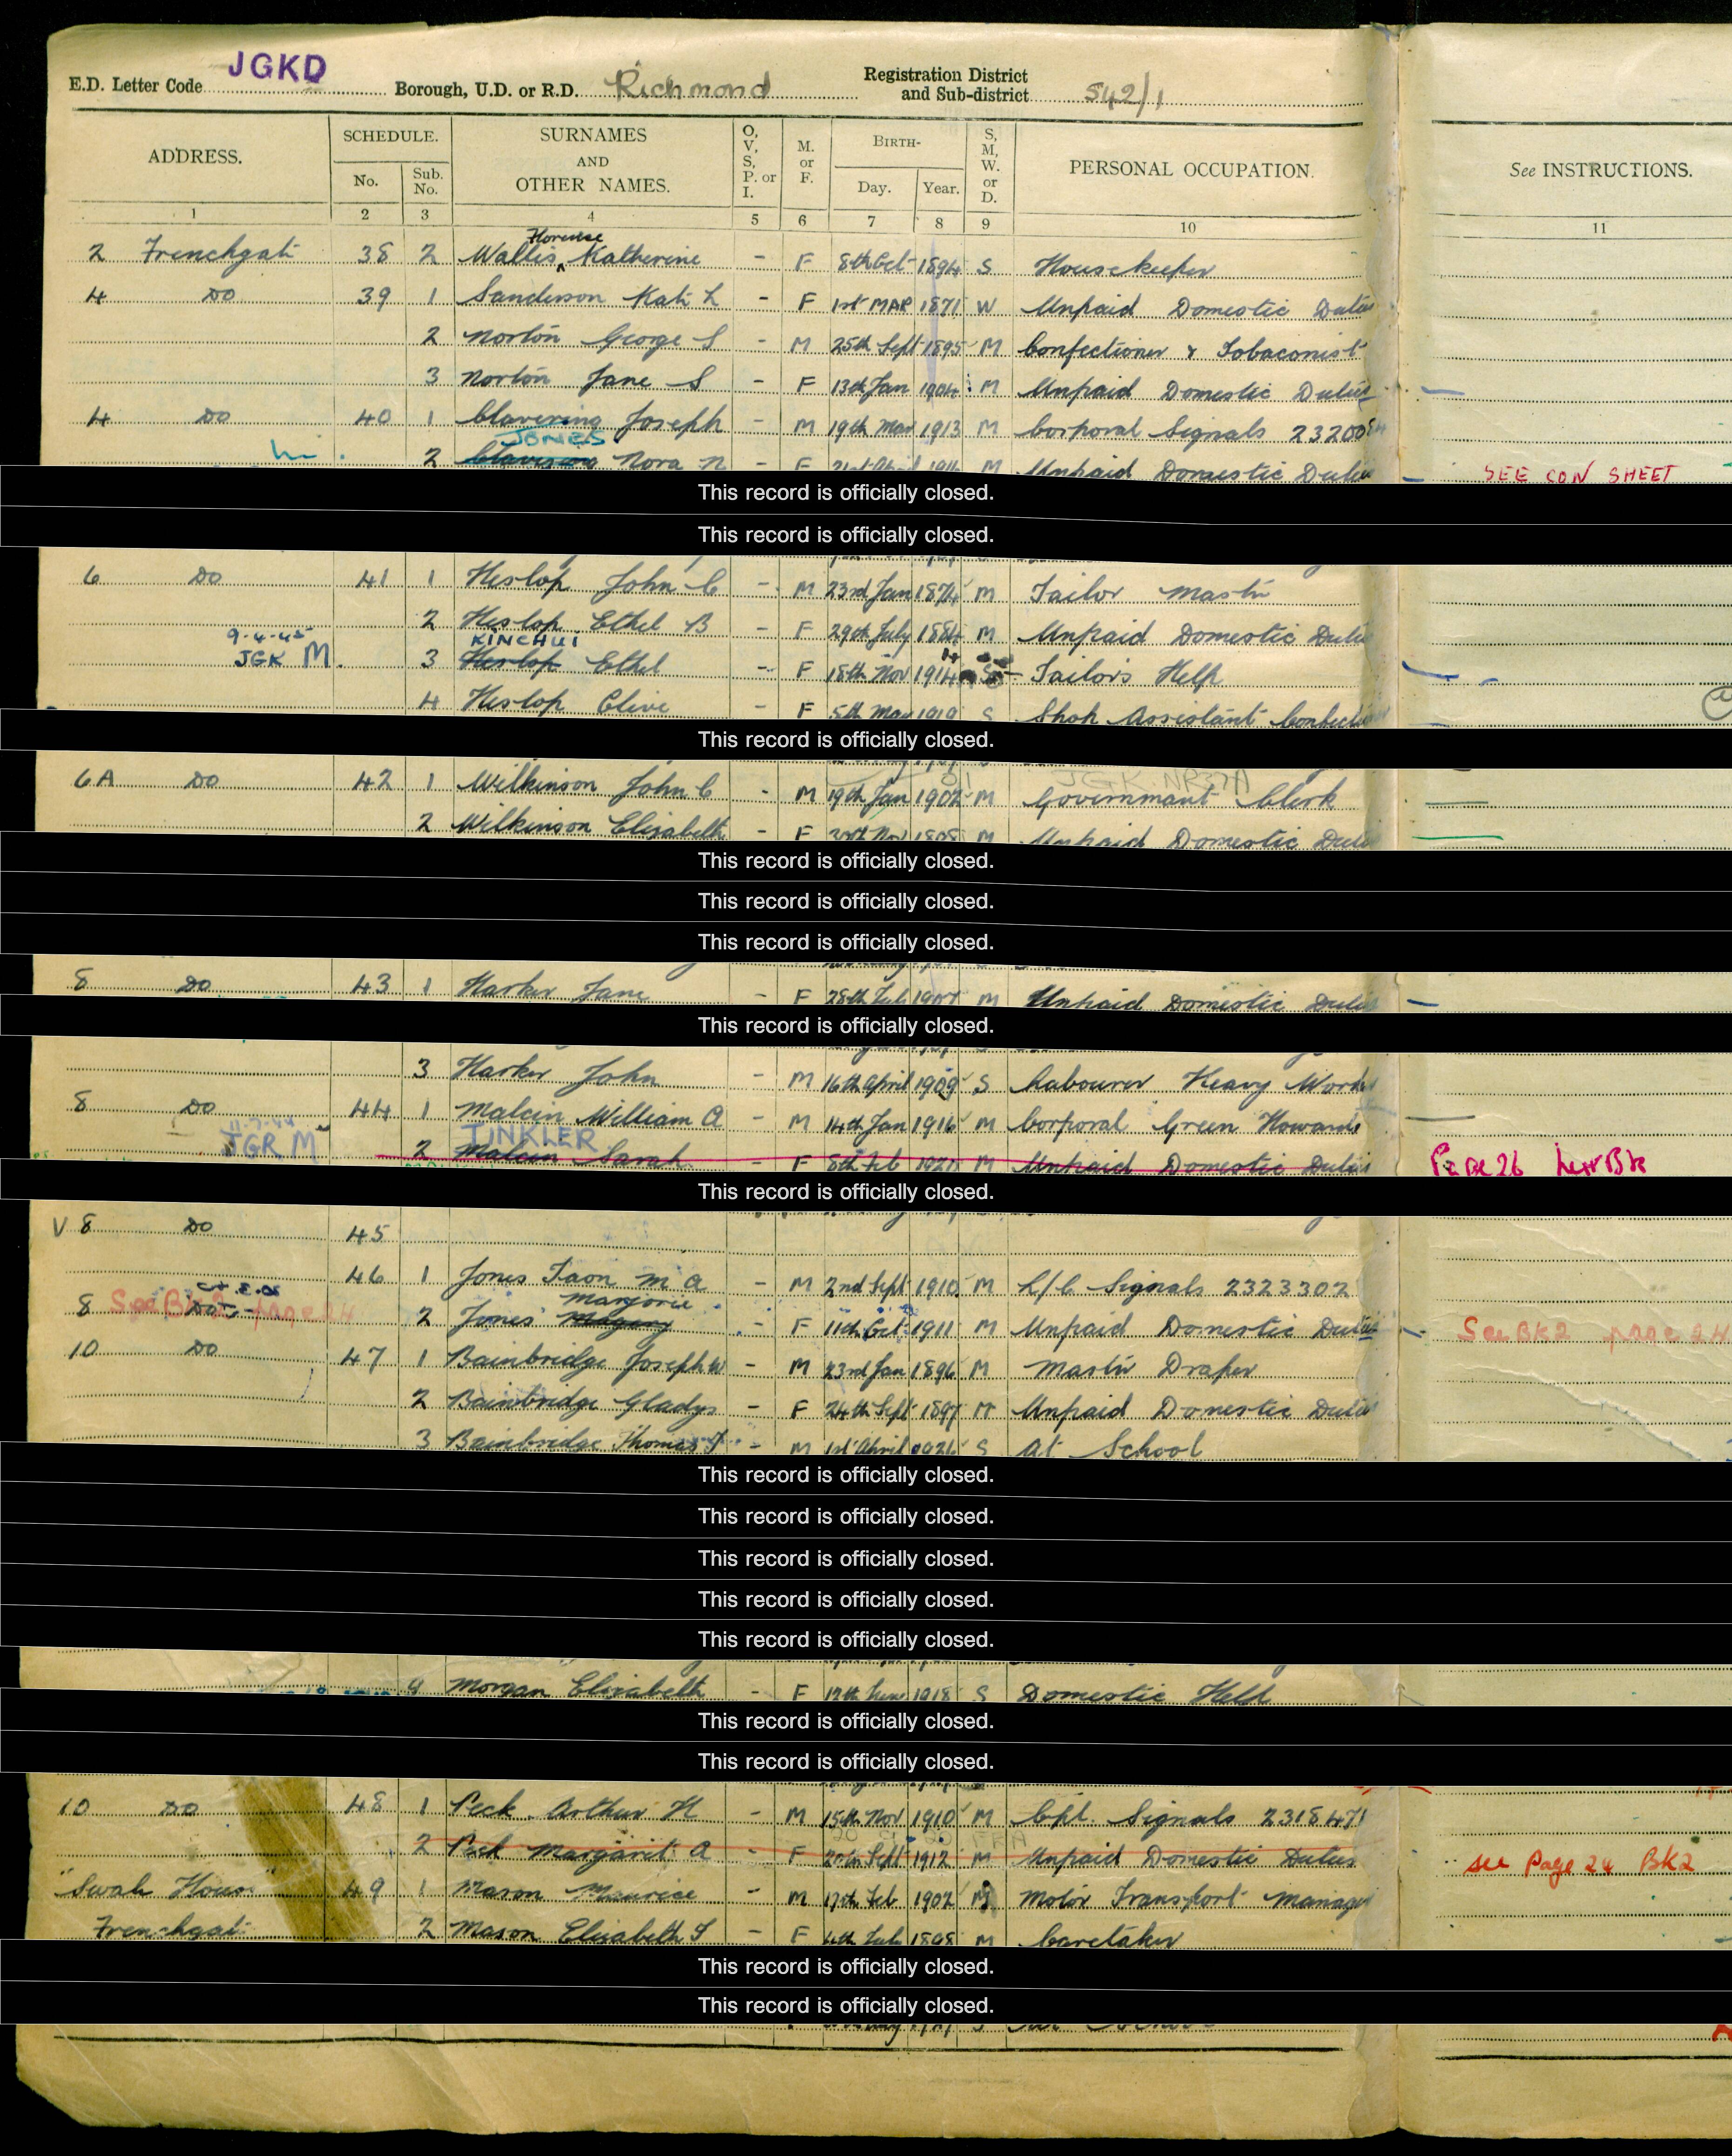 E.D. Letter Code JGKD Borough, U.D. or R.D. Richmond Registration District and Sub-district 542/1
ADDRESS. SCHEDULE. No. Sub. No. SURNAMES AND OTHER NAMES. O, V, S, P. or I. M. or F. BIRTH- Day. Year. S, M, W. or D. PERSONAL OCCUPATION. See INSTRUCTIONS.
1 2 3 4 5 6 7 8 9 10 11
Florence
2 Frenchgate 38 2 Wallis Katherine - F 8th Oct 1894 S Housekeeper
4 DO 39 1 Sanderson Kate L - F 1st MAR 1871 W Unpaid Domestic Duties
2 Norton George S - M 25th Sept 1895 M Confectioner & Tobaconist
3 Norton Jane S - F 13th Jan 1904 M Unpaid Domestic Duties
4 DO 40 1 Clavering Joseph - M 19th Mar 1913 M Corporal Signals
JONES
2 Clavering Nora N - F M Unpaid Domestic Duties SEE CON SHEET
This record is officially closed.
This record is officially closed.
6 DO 41 1 Heslop John C - M 23rd Jan 1874 M Tailor Master
2 Heslop Ethel B - F 29th July 1884 M Unpaid Domestic Duties
9-4-45 KINCHUI
JGK M. 3 Heslop Ethel - F 18th Nov 1914 S Tailor's Help
4 Heslop Clive - F 5th May 1919 S Shop Assistant
This record is officially closed.
JGK NR37A
6A DO 42 1 Wilkinson John C - M 19th Jan 1902 M Governmant Clerk
2 Wilkinson Elizabeth - F M Unpaid Domestic Duties
This record is officially closed.
This record is officially closed.
This record is officially closed.
8 DO 43 1 Harker Jane - F 28th Feb M Unpaid Domestic Duties
This record is officially closed.
3 Harker John - M 16th April 1909 S Labourer Heavy Work
8 DO 44 1 Malcin William A - M 14th Jan 1916 M Corporal Green Howards
JGR M TINKLER
2 Malcin Sarah - F 8th Feb 1921 M Unpaid Domestic Duties Page 26
This record is officially closed.
V 8 DO 45
46 1 Jones Taon M A - M 2nd Sept 1910 M L/C Signals 2323302
Marjorie
8 DO See BK 2 page 24 2 Jones - F 11th Oct 1911 M Unpaid Domestic Duties See BK2 page 24
10 DO 47 1 Bainbridge Joseph W - M 23rd Jan 1896 M Master Draper
2 Bainbridge Gladys - F 24th Sept 1897 M Unpaid Domestic Duties
3 Bainbridge Thomas J - M 1st April S At School
This record is officially closed.
This record is officially closed.
This record is officially closed.
This record is officially closed.
This record is officially closed.
9 Morgan Elizabeth - F 12th June 1918 S Domestic Help
This record is officially closed.
This record is officially closed.
10 DO 48 1 Peck Arthur H - M 15th Nov 1910 M Cpl. Signals 2318471
2 Peck Margaret A - F 20th Sept 1912 M Unpaid Domestic Duties see Page 24 BK2
"Swale House" 49 1 Mason Maurice - M 17th Feb 1902 M Motor Transport Manager
Frenchgate 2 Mason Elizabeth J - F M Caretaker
This record is officially closed.
This record is officially closed.